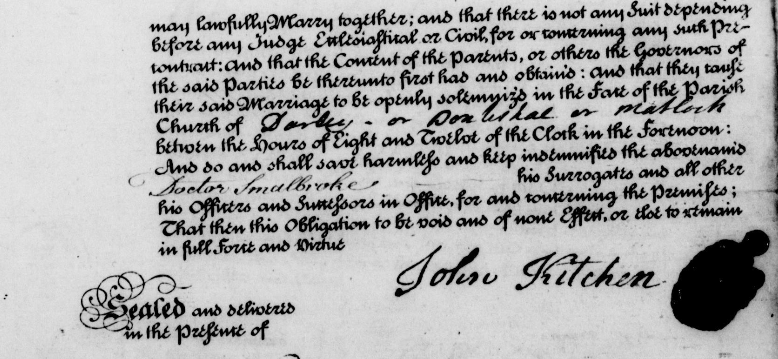 may lawfully Marry together; and that there is not any Suit depending
before any Judge Ecclesiastical or Civil, for or concerning any such Pre-
contract: and that the Consent of the Parents, or others the Governors of
the said Parties be thereunto first had and obtain'd: and that they cause
their said Marriage to be openly solemniz'd in the Face of the Parish
Church of Darley - or or Matlock
between the Hours of Eight and Twelve of the Clock in the Forenoon:
And do and shall save harmless and keep indemnified the abovenam'd
Doctor Smalbroke his Surrogates and all other
his Officers and Successors in Office, for and concerning the Premises;
That then this Obligation to be void and of none Effect, or else to remain
in full Force and Virtue
John Kitchen
Sealed and delivered
in the Presence of